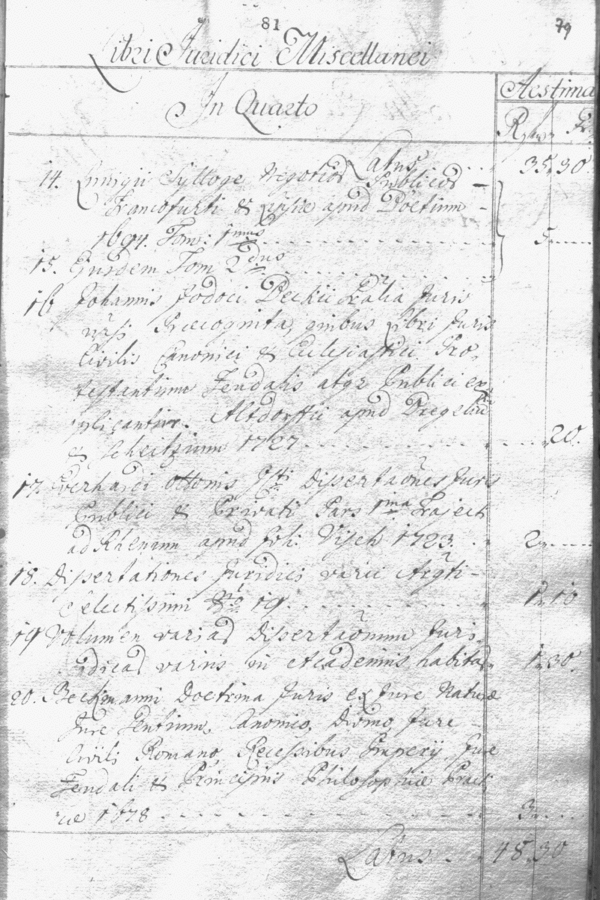 81
79
Libri Juridici Miscellanei
In Quarto
Aestima
Latus 35. 30.
14. Sylloge Negotior. Publicor.
Francofurti & Lipsiae apud Doctium
1694. Tom. 1mus 5
15. Ejusdem Tom 2dus
16 Johannis Jodoci Beckii Juris
Praecognita, quibus Libri Juris
Civilis Canonici & Ecclesiastici Pro-
testantium Feudalis atqe Publici ex-
plicantur. Altdorffii apud
& 1727. 20.
17. Everhardi Ottonis Dissertationes Juris
Publici & Privati Pars 1ma Traject
ad Rhenum apud Joh. Visch 1723. 2
18. Dissertationes Juridici varii Argti-
Selectissimi 19. 1. 10
19 Volumen variar. Dissertaonum Juri-
dicar. varius in Academiis habitar. 1. 30.
20. Beckmanni Doctrina Juris ex Jure Naturae
Jure Gentium, Canonico, Divino Jure
Civili Romano, Recessibus Imperii Jure
Feudali & Principiis Philosophiae Pract
cae 1678 3
Latus 48. 30